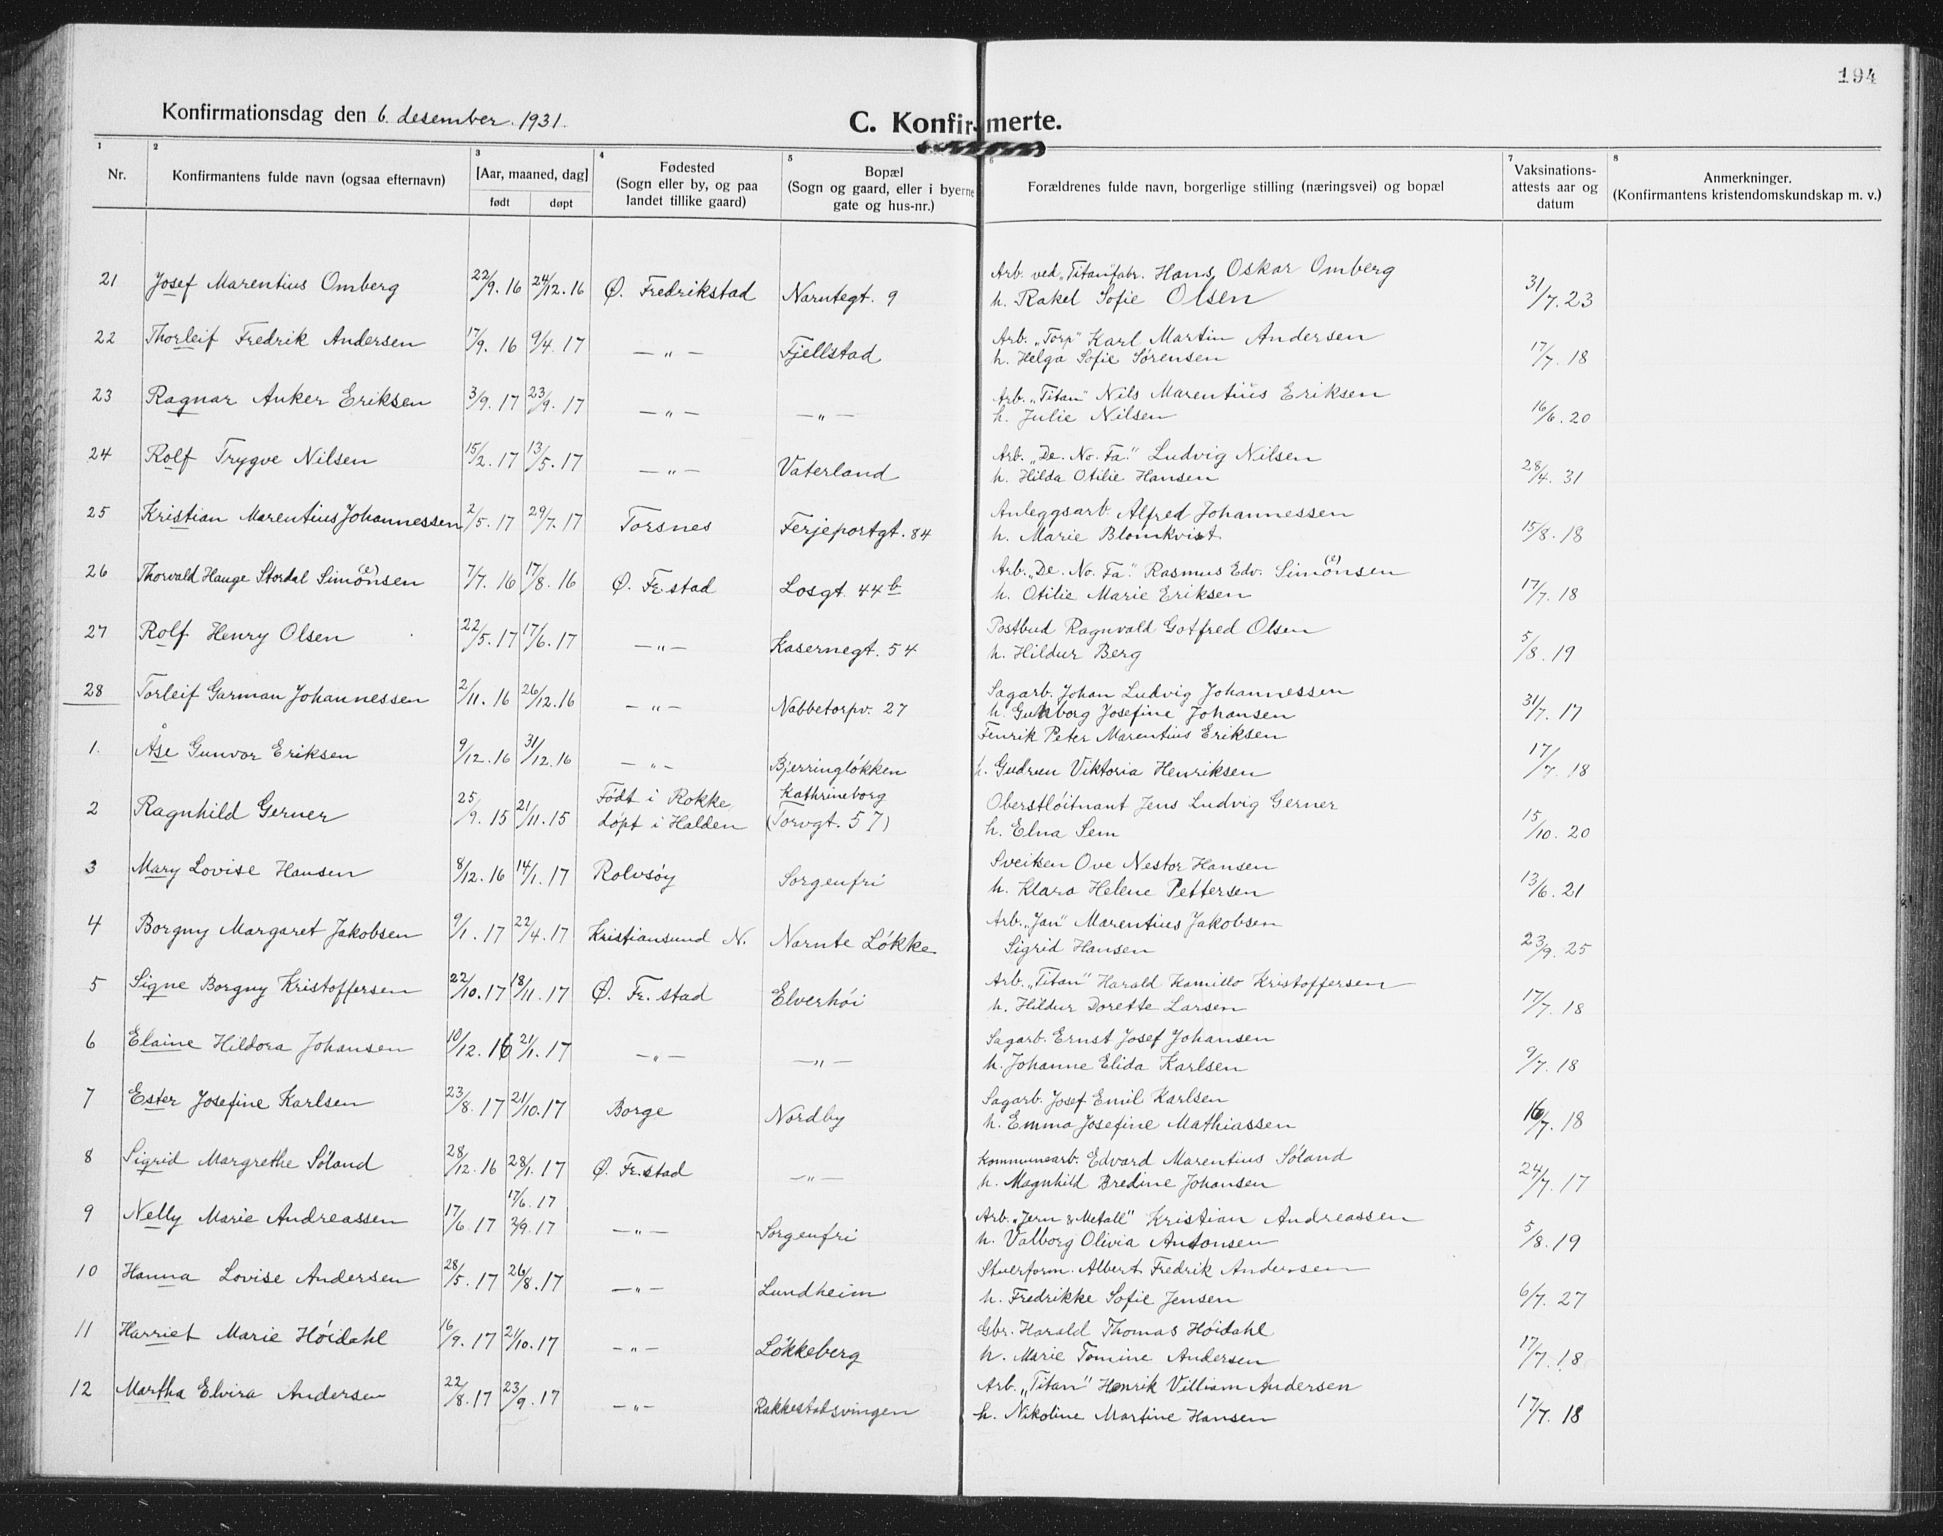 194
Konfirmationsdag den 6. desember 1931.
C. Konfirmerte.
1 2 3 4 5 6 7 8
Nr. Konfirmantens fulde navn (ogsaa efternavn) [Aar, maaned, dag] født døpt Fødested (Sogn eller by, og paa landet tillike gaard) Bopæl (Sogn og gaard, eller i byerne gate og hus-nr.) Forældrenes fulde navn, borgerlige stilling (næringsvei) og bopæl Vaksinations-attests aar og datum Anmerkninger. (Konfirmantens kristendomskundskap m. v.)
21 Josef Marentius Omberg 22/9. 16 24/12. 16 Ø. Fredrikstad Narntegt. 9 Arb. ved "Titan"fabr. Hans Oskar Omberg
h. Rakel Sofie Olsen 31/7. 23
22 Thorleif Fredrik Andersen 17/9. 16 9/4. 17 — " — Fjellstad Arb. "Torp" Karl Martin Andersen
h. Helga Sofie Sørensen 17/7. 18
23 Ragnar Anker Eriksen 3/9. 17 23/9. 17 — " — — " — Arb. "Titan" Nils Marentius Eriksen
h. Julie Nilsen 16/6. 20
24 Rolf Trygve Nilsen 15/2. 17 13/5. 17 — " — Vaterland Arb. "De. No. Fa." Ludvig Nilsen
h. Hilda Otilie Hansen 28/4. 31
25 Kristian Marentius Johannessen 2/5. 17 29/7. 17 Torsnes Ferjeportgt. 84 Anleggsarb. Alfred Johannessen
h. Marie Blomkvist 15/8. 18
26 Thorvald Hauge Stordal Simonsen (e) 7/7. 16 17/8. 16 Ø. Fr.stad Losgt. 44 b Arb. "De. No. Fa." Rasmus Edv. Simonsen (e)
h. Otilie Marie Eriksen 17/7. 18
27 Rolf Henry Olsen 22/5. 17 17/6. 17 — " — Kasernegt. 54 Postbud Ragnvald Gotfred Olsen
h. Hildur Berg 5/8. 19
28 Torleif Garman Johannessen 2/11. 16 26/12. 16 — " — Nabbetorpv. 27 Sagarb. Johan Ludvig Johannessen
h. Gunborg Josefine Johansen 31/7. 17
1. Åse Gunvor Eriksen 9/12. 16 31/12. 16 — " — Bjerringløkken Fenrik Peter Marentius Eriksen
h. Gudrun Viktoria Henriksen 17/7. 18
2 Ragnhild Gerner 25/9. 15 21/11. 15 Født i Rokke, døpt i Halden Kathrineborg (Torvgt. 57) Oberstløitnant Jens Ludvig Gerner
h. Elna Sem 15/10. 20
3 Mary Lovise Hansen 8/12. 16 14/1. 17 Rolvsøy Sorgenfri Sveiser Ove Nestor Hansen
h. Klara Helene Pettersen 13/6. 21
4 Borgny Margaret Jakobsen 9/1. 17 22/4. 17 Kristiansund N. Narnte Løkke Arb. "Jan" Marentius Jakobsen
Sigrid Hansen 23/9. 25
5 Signe Borgny Kristoffersen 22/10. 17 18/11. 17 Ø. Fr. stad Elverhøi Arb. "Titan" Harald Kamillo Kristoffersen
h. Hildur Dorette Larsen 17/7. 18
6 Elaine Hildora Johansen 10/12. 16 21/1. 17 — " — — " — Sagarb. Ernst Josef Johansen
h. Johanne Elida Karlsen 9/7. 18
7 Ester Josefine Karlsen 23/8. 17 21/10. 17 Borge Nordby Sagarb. Josef Emil Karlsen
h. Emma Josefine Mathiassen 16/7. 18
8 Sigrid Margrethe Søland 28/12. 16 28/1. 17 Ø. Fr.stad — " — Kommunearb. Edvard Marentius Søland
h. Magnhild Bredine Johansen 24/7. 17
9 Nelly Marie Andreassen 17/6. 17 17/6. 17 2/9. 17 — " — Sorgenfri Arb. "Jern & Metall" Kristian Andreassen
h. Valborg Olivia Antonsen 5/8. 19
10 Hanna Lovise Andersen 28/5. 17 26/8. 17 — " — Lundheim Stuerform. Albert Fredrik Andersen
h. Fredrikke Sofie Jensen 6/7. 27
11 Harriet Marie Høidahl 16/9. 17 21/10. 17 — " — Løkkeberg Gbr. Harald Thomas Høidahl
h. Marie Tomine Andersen 17/7. 18
12 Martha Elvira Andersen 22/8. 17 23/9. 17 — " — Rakkestadsvingen Arb. "Titan" Henrik Villiam Andersen
h. Nikoline Martine Hansen 17/7. 18